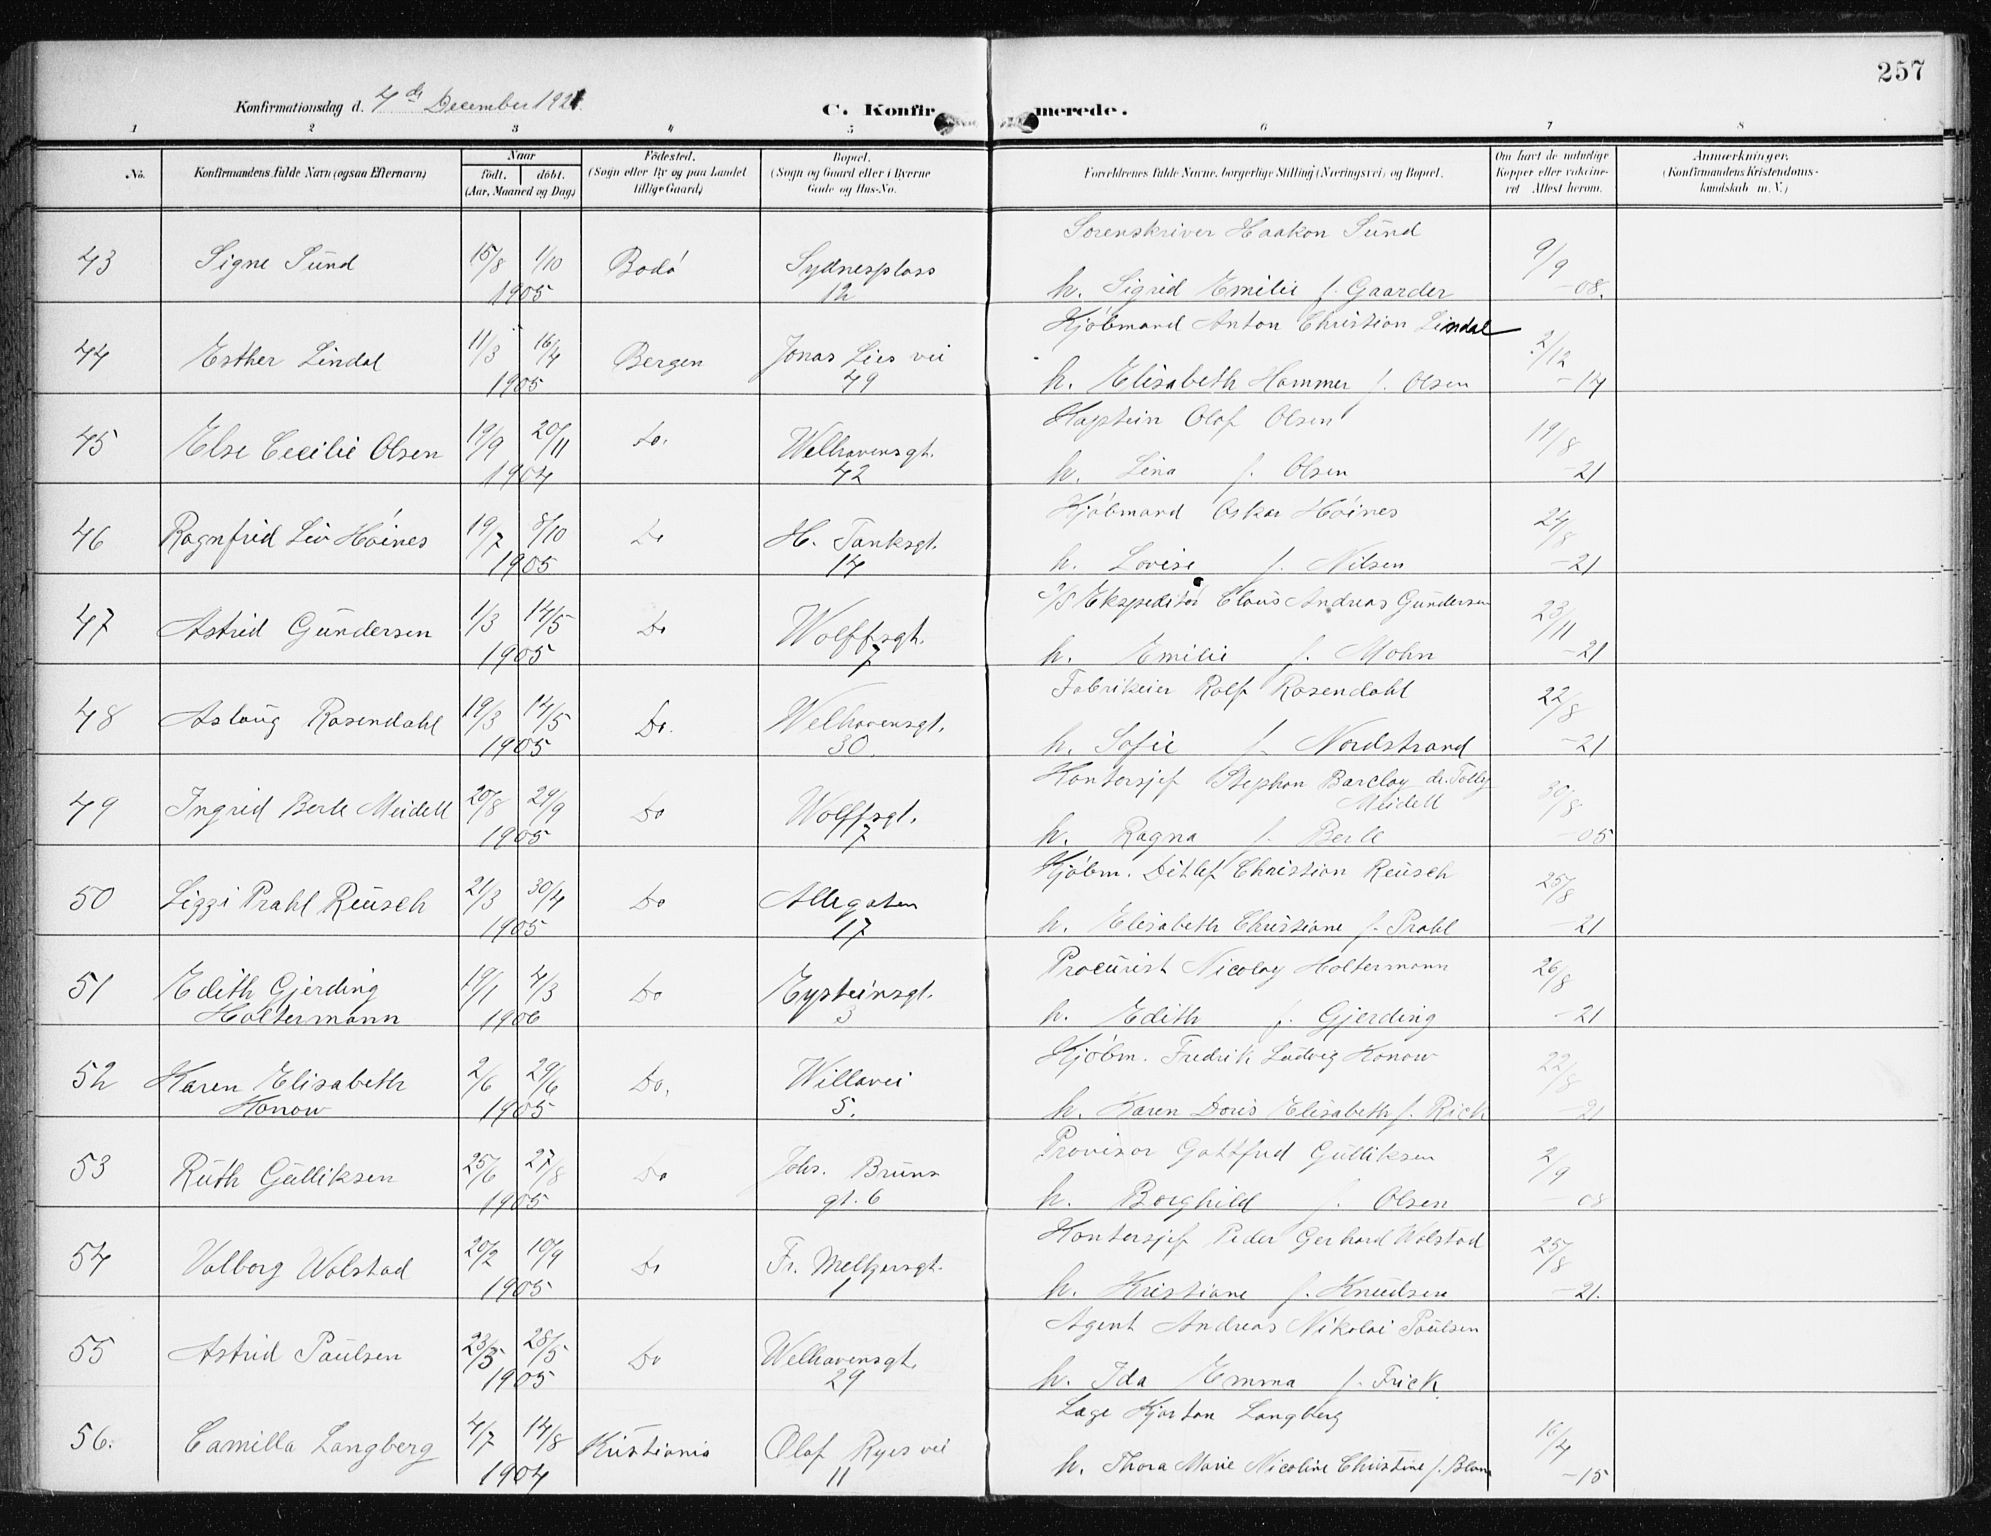 257
Konfirmationsdag d. 4de December 1921.
C. Konfirmerede.
1 2 3 4 5 6 7 8
No.
Konfirmandens fulde Navn (ogsaa Efternavn)
Naar
født. døbt.
(Aar, Maaned og Dag)
Fødested.
(Sogn eller By og paa Landet
tillige Gaard)
Bopæl.
(Sogn og Gaard eller i Byerne
Gade og Hus-No.
Forældrenes fulde Navne, borgerlige Stilling (Næringsvei) og Bopæl.
Om havt de naturlige
Kopper eller vaksine-
ret Attest herom.
Anmærkninger.
(Konfirmandens Kristendoms-
kundskab m. V.)
Sorenskriver Haakon Sund
43 Signe Sund 15/8 1/10 Bodø Sydnesplass 9/9
1905 12 h. Sigrid Emilie f. Gaarder -08.
Kjøbmand Anton Christian Lindal
44 Esther Lindal 11/3 16/4 Bergen Jonas Lies vei 2/12
1905 49 h. Elisabeth Hammer f. Olsen -14
Kaptein Olaf Olsen
45 Else Cecilie Olsen 19/9 20/11 Do. Welhavensgt. 19/8
1904 42 h. Lina f. Olsen -21
Kjøbmand Oskar Høines
46 Ragnfrid Liv Høines 19/7 8/10 Do H. Tanksgt. 24/8
1905 14 h. Lovise f. Nilsen -21
D/S Ekspeditør Claus Andreas Gundersen
47 Astrid Gundersen 1/3 14/5 Do Wolffsgt. 23/11
1905 7 h. Emilie f. Mohn -21
Fabrikeier Rolf Rosendahl
48 Aslaug Rosendahl 19/3 14/5 Do. Welhavensgt. 22/8
1905 30. h. Sofie f. Nordstrand -21
Kontorsjef Stephan Barclay de Tolly
Meidell
49 Ingrid Berle Meidell 20/8 24/9 Do Wolffsgt. 30/8
1905 7 h. Ragna f. Berle -05
Kjøbm. Ditlef Christian Reusch
50 Lizzi Prahl Reusch 21/3 30/4 Do Allegaten 25/8
1905 17 h. Elisabeth Christiane f. Prahl -21
Procurist Nicolay Holtermann
51 Edith Gjerding 19/1 4/3 Do Eysteinsgt. 26/8
Holtermann 1906 3 h. Edith f. Gjerding -21
Kjøbm. Fredrik Ludvig Konow
52 Karen Elisabeth 2/6 29/6 Do. Willavei 22/8
Konow 1905 5. h. Karen Doris Elisabeth f. Rick -21
Provisor Gottfred Gulliksen
53 Ruth Gulliksen 25/6 27/8 Do Johs. Bruns 2/9
1905 gt. 6 h. Borghild f. Olsen -08
Kontorsjef Peder Gerhard Wolstad
54 Valborg Wolstad 20/2 10/9 Do Fr. Meltzersgt. 25/8
1905 1 h. Kristiane f. Knudsen -21.
Agent Andreas Nikolai Paulsen
55 Astrid Paulsen 23/3 28/5 Do Welhavensgt.
1905 29 h. Ida Emma f. Frick.
Læge Kjartan Langberg
56. Camilla Langberg 4/7 14/8 Kristiania Olaf Ryes vei 16/4
1904 11 h. Thora Marie Nicoline Christine f. Blom -15